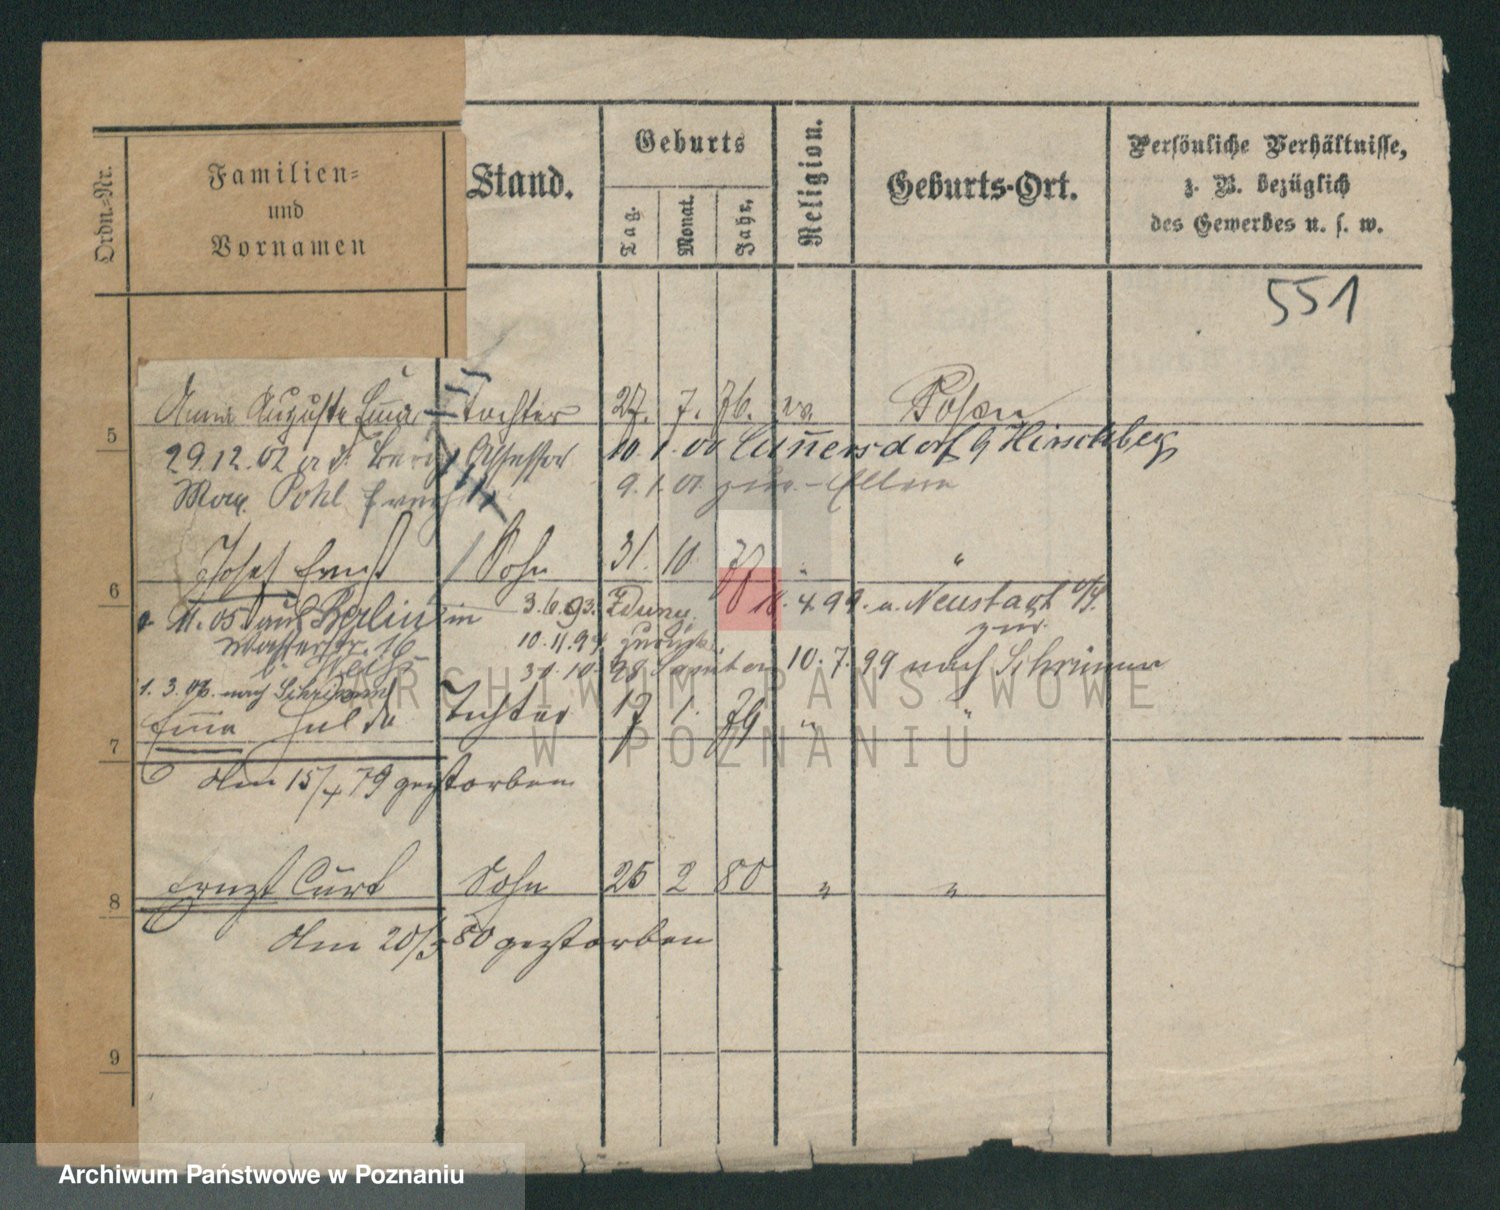 Ordn.-Nr.
Familien-
und
Vornamen
Stand.
Geburts
Tag.
Monat.
Jahr.
Religion.
Geburts-Ort.
Persönliche Verhältnisse,
z. B. bezüglich
des Gewerbes u. s. w.
551
5 Anna Auguste Emma Tochter 27. 7. 76. ev. Posen
29.12.02 a. d. Berg Assessor 10. 1. 00 Cunnersdorf b Hirschberg
Max Pohl 9. 1. 01. zur Eltern
6 Josef Ernst Sohn 31. 10. 77 " "
11. 05 aus Berlin in 3.6.93. Zduny 18. 4 99. n. Neustadt
Wasserstr. 16 10.11.94 zurück zur
31.10.98 10.7.99 nach Schrimm
1.3.06. nach Schrimm
7 Emma Hulda Tochter 17 1. 79 " "
Am 15/4 79 gestorben
8 Ernst Curt Sohn 25 2 80 " "
Am 20/3 80 gestorben
9
ARCHIWUM PAŃSTWOWE
W POZNANIU
Archiwum Państwowe w Poznaniu